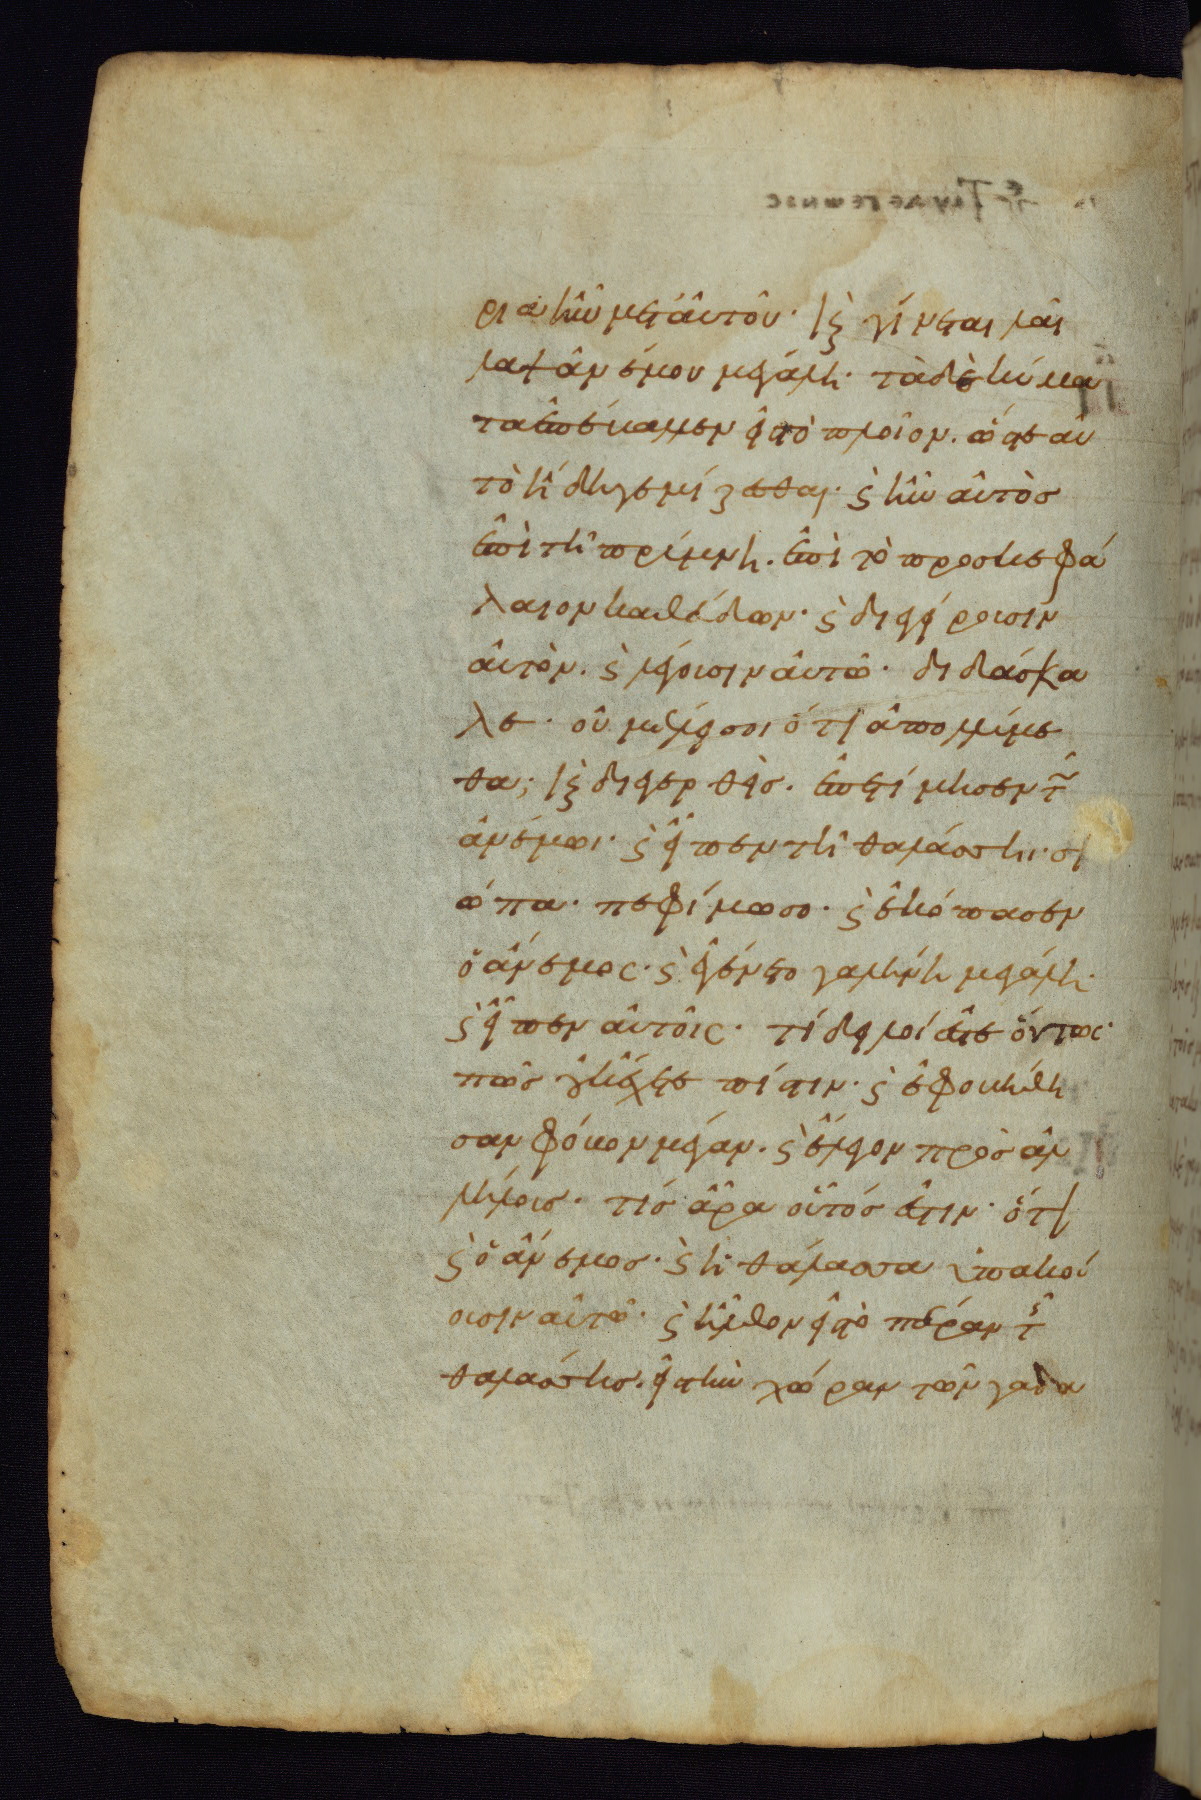 ρια ἦν μετ' ἀυτοῦ· ϗ γίνεται λαῖ
λαψ ἀνέμου μεγάλη· τὰ δὲ κύμα
τα ἐπέβαλλεν εἰς τὸ πλοῖον. ὥστε αυ
τὸ ἤδη γεμίζεσθαι· ϗ ἦν αὐτὸσ
ἐπὶ τῆ πρύμνη. ἐπὶ τὸ προσκεφά
λαιον καθεύδων· ϗ διεγείρουσιν
αὐτὸν. ϗ λέγουσιν αὐτῶ· διδάσκα
λε· οὐ μέλει σοι ὅτι ἀπολλύμε
θα; ϗ διεγερθεὶσ. ἐπετίμησεν τῶ
ἀνέμωι· ϗ εἶπεν τῆ θαλάσσηι· σι
ώπα· πεφίμωσο· ϗ ἐκόπασεν
ὁ ἄνεμος· ϗ ἐγένετο γαλήνη μεγάλη·
ϗ εἶπεν αὐτοῖς· τί δειλοί ἐστε οὕτως·
πῶσ οὐκ ἔχετε πίστιν· ϗ ἐφοβήθη
σαν φόβον μέγαν. ϗ ἔλεγον πρὸσ ἀλ
λήλουσ· τίσ ἄρα οὗτόσ ἐστιν· ὅτι
ϗ ὁ ἄνεμοσ· ϗ ἡ θάλασσα ὑπακού
ουσιν αὐτῶ· ϗ ἦλθον εἰς τὸ πέραν τῆς
θαλάσσησ. εἰς τὴν χώραν τῶν γαδα